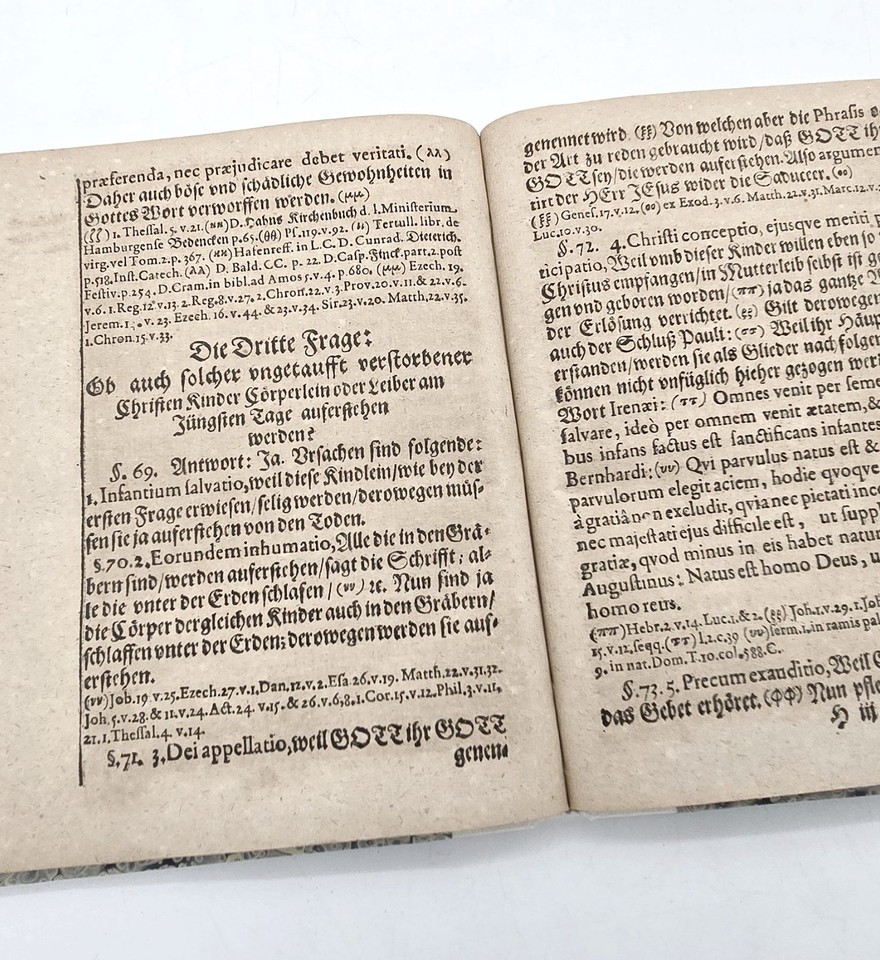 præferenda, nec præjudicare debet veritati. (λλ)
Daher auch böse vnd schädliche Gewohnheiten in
Gottes Wort verworffen werden. (μμ)
(ξξ) 1. Thessal. 5. v. 21. (κκ) D. Hahns Kirchenbuch d. l. Ministerium
Hamburgense Bedencken p. 65. (θθ) Ps. 119. v. 92. (ιι) Tertull. libr. de
virg. vel Tom. 2. p. 367. (κκ) Hafenreff. in L. C. D. Cunrad. Dieterich.
p. 518. Inst. Catech. (λλ) D. Bald. CC. p. 22. D. Casp. Finck. part. 2. post
Festiv. p. 254. D. Cram. in bibl. ad Amos 5. v. 4. p. 680. (μμ) Ezech. 19.
v. 6. 1. Reg. 12. v. 13. 2. Reg. 8. v. 27. 2. Chron. 22. v. 3. Prov. 20. v. 11. & 22. v. 6.
Jerem. v. 23. Ezech. 16. v. 44. & 23. v. 34. Sir. 23. v. 20. Matth. 22. v. 35.
1. Chron. 15. v. 33.
Die Dritte Frage:
Ob auch solcher vngetaufft verstorbener
Christen Kinder Cörperlein oder Leiber am
Jüngsten Tage auferstehen
werden?
§. 69. Antwort: Ja. Vrsachen sind folgende:
1. Infantium salvatio, weil diese Kindlein / wie bey der
ersten Frage erwiesen / selig werden / derowegen müs-
sen sie ja auferstehen von den Toden.
§. 70. 2. Eorundem inhumatio, Alle die in den Grä-
bern sind / werden auferstehen / sagt die Schrifft; al-
le die vnter der Erden schlafen / (νν) ꝛc. Nun sind ja
die Cörper dergleichen Kinder auch in den Gräbern /
schlaffen vnter der Erden; derowegen werden sie auf-
erstehen.
(νν) Job. 19. v. 25. Ezech. 27. v. 1. Dan. 12. v. 2. Esa. 26. v. 19. Matth. 22. v. 31. 32.
Joh. 5. v. 28. & 11. v. 24. Act. 24. v. 15. & 26. v. 6, 8. 1. Cor. 15. v. 12. Phil. 3. v. 11,
21. 1. Thessal. 4. v. 14.
§. 71. 3. Dei appellatio, weil GOTT ihr GOTT
genen-
genennet wird. (ξξ) Von welchen aber die Phrasis
der Art zu reden gebraucht wird / daß GOTT
GOTT sey / die werden auferstehen. Also
tirt der HErr JEsus wider die Saduceer. (οο)
(ξξ) Genes. 17. v. 12. (οο) ex Exod. 3. v. 6. Matth. 22. v. 31. Marc. 12. v.
Luc. 10. v. 30.
§. 72. 4. Christi conceptio, ejusque meriti
ticipatio, Weil vmb dieser Kinder willen eben so
Christus empfangen / in Mutterleib selbst ist
gen vnd geboren worden / (ππ) ja das gantze
der Erlösung verrichtet. (ξξ) Gilt derowegen
auch der Schluß Pauli: (σσ) Weil ihr
erstanden / werden sie als Glieder nach folgen
können nicht vnfüglich hieher gezogen
Wort Irenæi: (ττ) Omnes venit per
salvare, ideò per omnem venit ætatem, &
bus infans factus est sanctificans infantes
Bernhardi: (υυ) Qvi parvulus natus est &
parvulorum elegit aciem, hodie qvoqve
à gratiâ non excludit, qvia nec pietati
nec majestati ejus difficile est, ut
gratiæ, qvod minus in eis habet
Augustinus: Natus est homo Deus,
homo reus.
(ππ) Hebr. 2. v. 14. Luc. 1. & 2. (ξξ) Joh. 1. v. 29. 1. Joh
15. v. 12. seqq. (ττ) l. 2. c. 39 (υυ) serm. 1. in ramis
9. in nat. Dom. T. 10. col. 588. C.
§. 73. 5. Precum exauditio, Weil
das Gebet erhöret. (ΦΦ) Nun
H iij